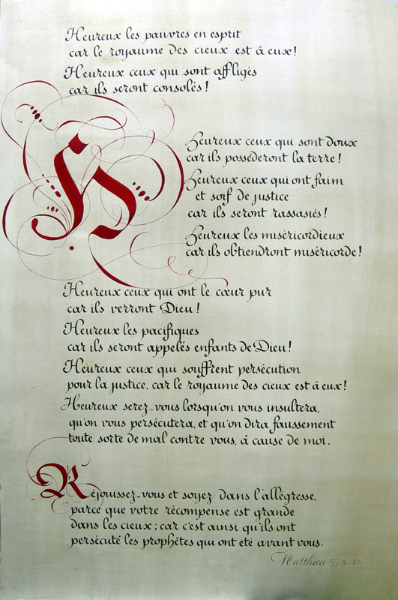 Heureux les pauvres en esprit
car le royaume des cieux est à eux!
Heureux ceux qui sont affligés
car ils seront consolés!
H
Heureux ceux qui sont doux
car ils posséderont la terre!
Heureux ceux qui ont faim
et soif de justice
car ils seront rassasiés!
Heureux les miséricordieux
car ils obtiendront miséricorde!
Heureux ceux qui ont le cœur pur
car ils verront Dieu!
Heureux les pacifiques
car ils seront appelés enfants de Dieu!
Heureux ceux qui souffrent persécution
pour la justice, car le royaume des cieux est à eux!
Heureux serez-vous lorsqu'on vous insultera,
qu'on vous persécutera, et qu'on dira faussement
toute sorte de mal contre vous, à cause de moi.
Réjouissez-vous et soyez dans l'allégresse,
parce que votre récompense est grande
dans les cieux; car c'est ainsi qu'ils ont
persécuté les prophètes qui ont été avant vous.
Matthieu